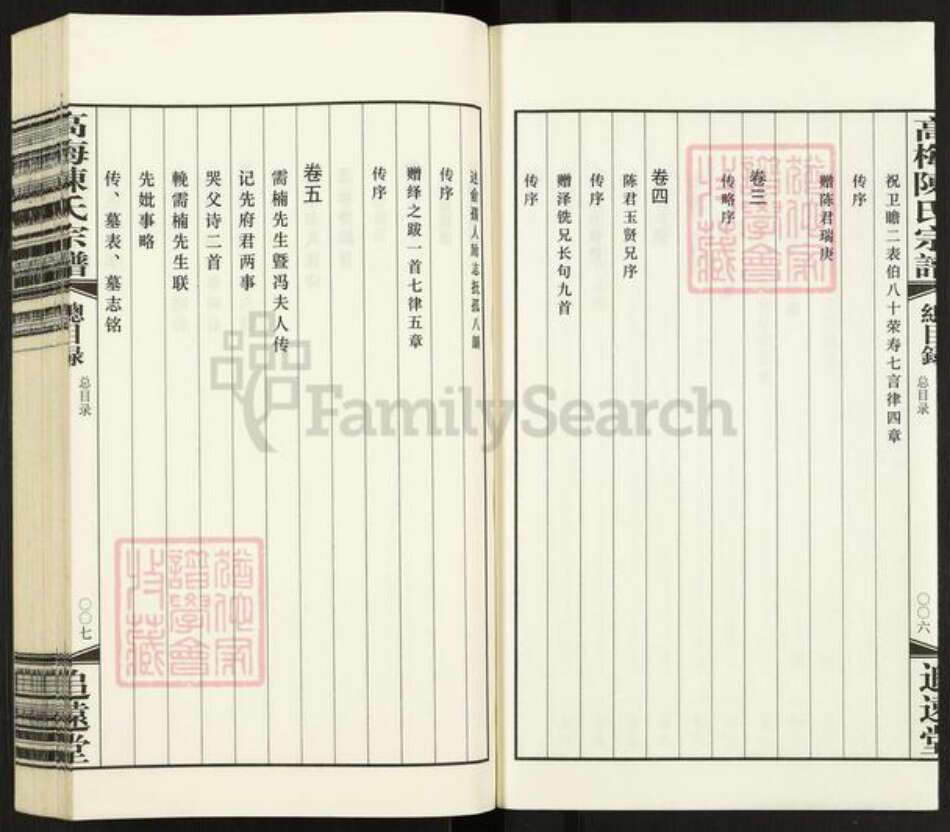 高梅陳氏宗譜
總目錄
总目录
〇〇六
追遠堂
祝卫瞻二表伯八十荣寿七言律四章
传序
赠陈君瑞庚
卷三
传略序
卷四
陈君玉贤兄序
传序
赠泽铣兄长句九首
传序
传序
赠绎之跋一首七律五章
传序
卷五
需楠先生暨冯夫人传
记先府君两事
哭父诗二首
輓需楠先生联
先妣事略
传、墓表、墓志铭
高梅陳氏宗譜
總目録
总目录
〇〇七
追遠堂
FamilySearch
譜學會
收藏
譜學會
收藏